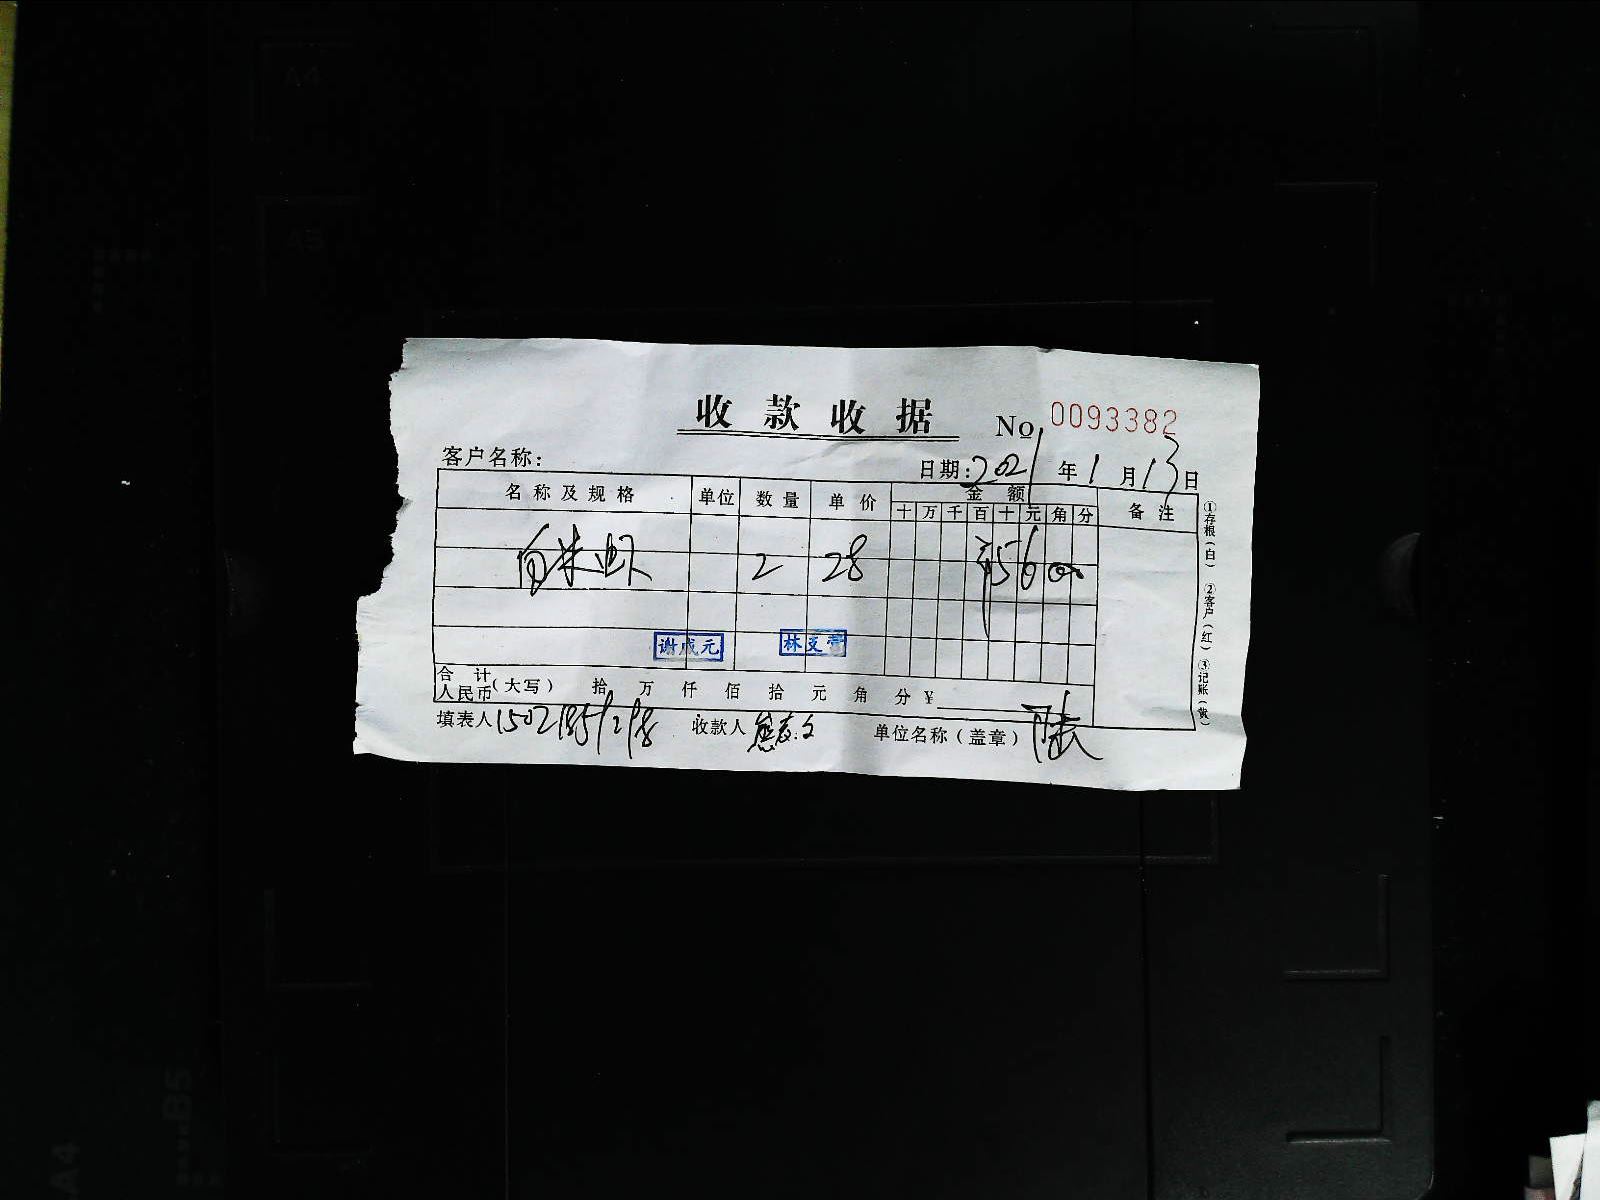 A4
A5
收款收据
No 0093382
客户名称:
日期:2021年1月13日
名称及规格 单位 数量 单价 金额 备注
十 万 千 百 十 元 角 分
白米虾 2 28 5600
谢成元 林支营
合计
人民币(大写) 拾 万 仟 佰 拾 元 角 分 ¥
填表人 收款人 单位名称(盖章)
①存根(白) ②客户(红) ③记账(黄)
B5
A4